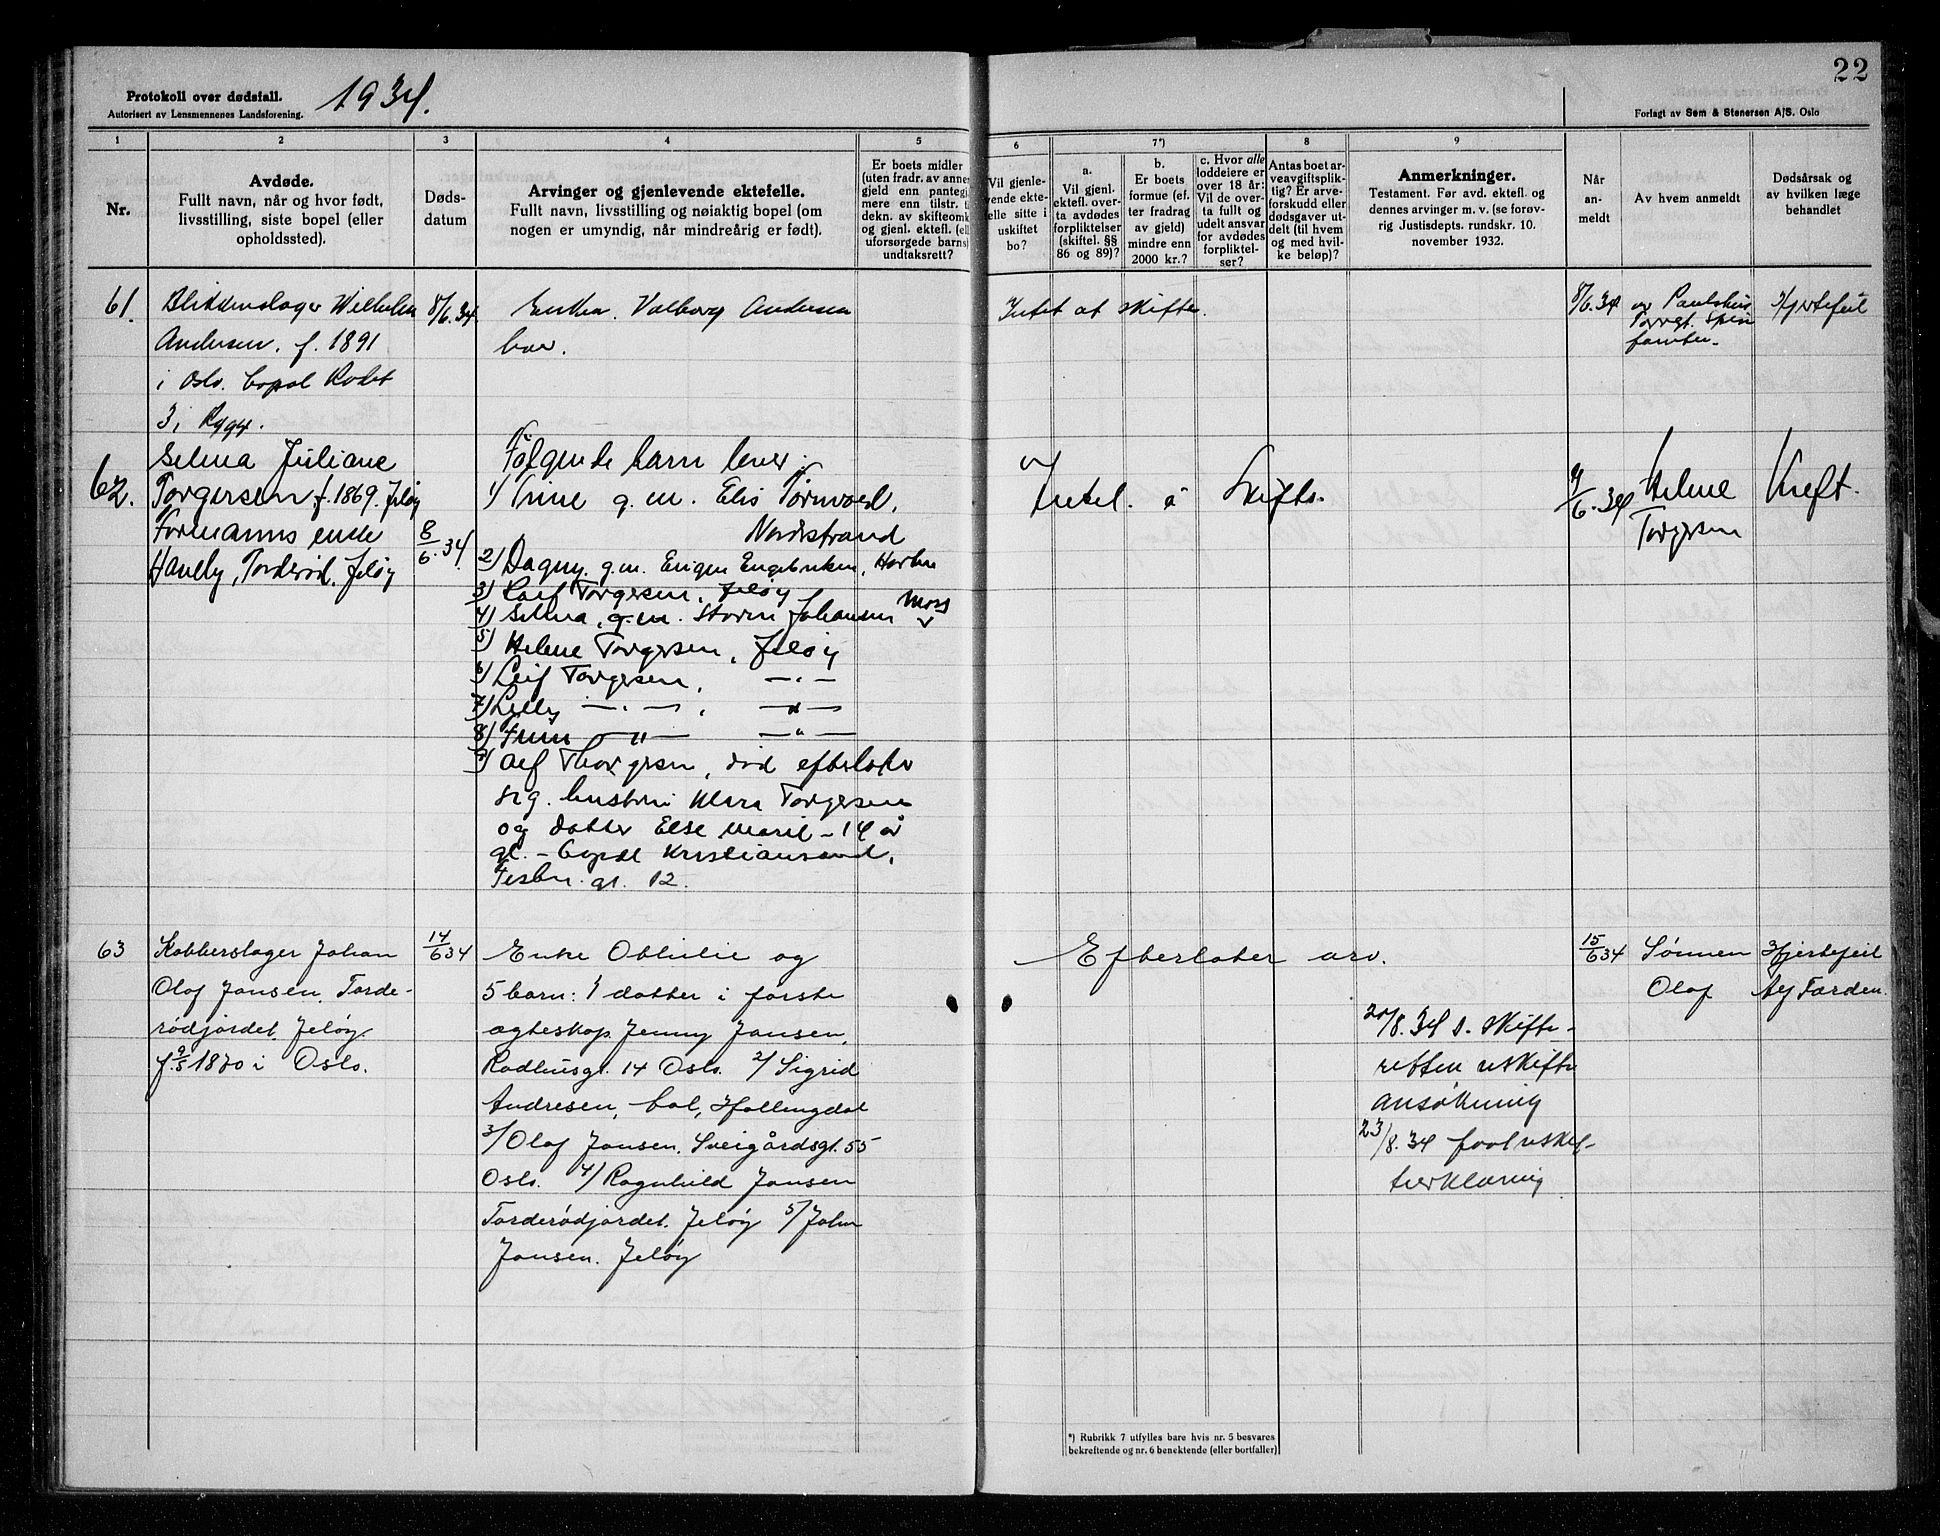 22
Protokoll over dødsfall.
1934.
Autorisert av Lensmennenes Landsforening.
Forlagt av Sem & Stenersen A/S. Oslo
1
2
3
4
5
6
7*)
8
9
Nr.
Avdøde.
Fullt navn, når og hvor født,
livsstilling, siste bopel (eller
opholdssted).
Døds-
datum
Arvinger og gjenlevende ektefelle.
Fullt navn, livsstilling og nøiaktig bopel (om
nogen er umyndig, når mindreårig er født).
Er boets midler
(uten fradr. av annen
gjeld enn pantegj
mere enn tilstr. t
dekn. av skifteomk
og gjenl. ektefl. (el
uforsørgede barns)
undtaksrett?
Vil gjenle-
vende ekte-
elle sitte i
uskiftet
bo?
a.
Vil gjenl.
ektefl. over-
ta avdødes
forpliktelser
(skiftel. §§
86 og 89)?
b.
Er boets
formue (ef.
ter fradrag
av gjeld)
mindre enn
2000 kr.?
c. Hvor alle
loddeiere er
over 18 år:
Vil de over-
ta fullt og
udelt ansvar
for avdødes
forpliktel-
ser?
Antas boet ar-
veavgiftsplik-
tig? Er arve-
forskudd eller
dødsgaver ut-
delt (til hvem
og med hvil-
ke beløp)?
Anmerkninger.
Testament. Før avd. ektefl. og
dennes arvinger m. v. (se forøv-
rig Justisdepts. rundskr. 10.
november 1932.
Når
an-
meldt
Av hvem anmeldt
Dødsårsak og
av hvilken læge
behandlet
61.
Wilhelm
Andersen, f. 1891
i Oslo. bopæl Rødet
3 i Rygge.
8/6.34.
Enken Valborg Andersen
Intet at skifte.
8/6.34
Hjertefeil
62.
Selma Juliane
Torgersen f. 1869. Jeløy
Formanns enke
Torderød, Jeløy
8/6.34.
Følgende barn lever:
1) Trine g.m. Elis
Nordstrand
2) Dagny. g.m.
3) Torgersen, Jeløy
4) Selma, g.m. Johansen Moss
5) Helene Torgersen, Jeløy
6) Leif Torgersen, —"—
7) —"—, —"—
8) —"— —"—
9) Alf Thorgersen, død efterlater
sig hustru Klara Torgersen
og datter Else Marie – 14 år
gl. – bopæl Kristiansand,
gt. 12.
Intet å Skifte.
9/6.34
Helene
Torgersen
Kreft.
63
Kobberslager Johan
Olaf Jansen. Torde-
rødjordet. Jeløy.
f. 9/5 1870 i Oslo.
14/6 34
Enke Othilie og
5 barn: 1 datter i første
ægteskap. Jenny Jansen,
Radhusgt. 14 Oslo. 2/ Sigrid
Andresen, Hallingdal
3/ Olaf Jansen. Sveigårdsgt. 55
Oslo. 4/ Ragnhild Jansen
Torderødjordet. Jeløy 5/ John
Jansen. Jeløy
Efterlater arv.
20/8.34 s. skifte-
retten uskifte
ansøkning
23/8.34 uskif-
teerklæring
15/6 34
Sønnen
Olaf
Hjertefeil
*) Rubrikk 7 utfylles bare hvis nr. 5 besvares
bekreftende og nr. 6 benektende (eller bortfaller)